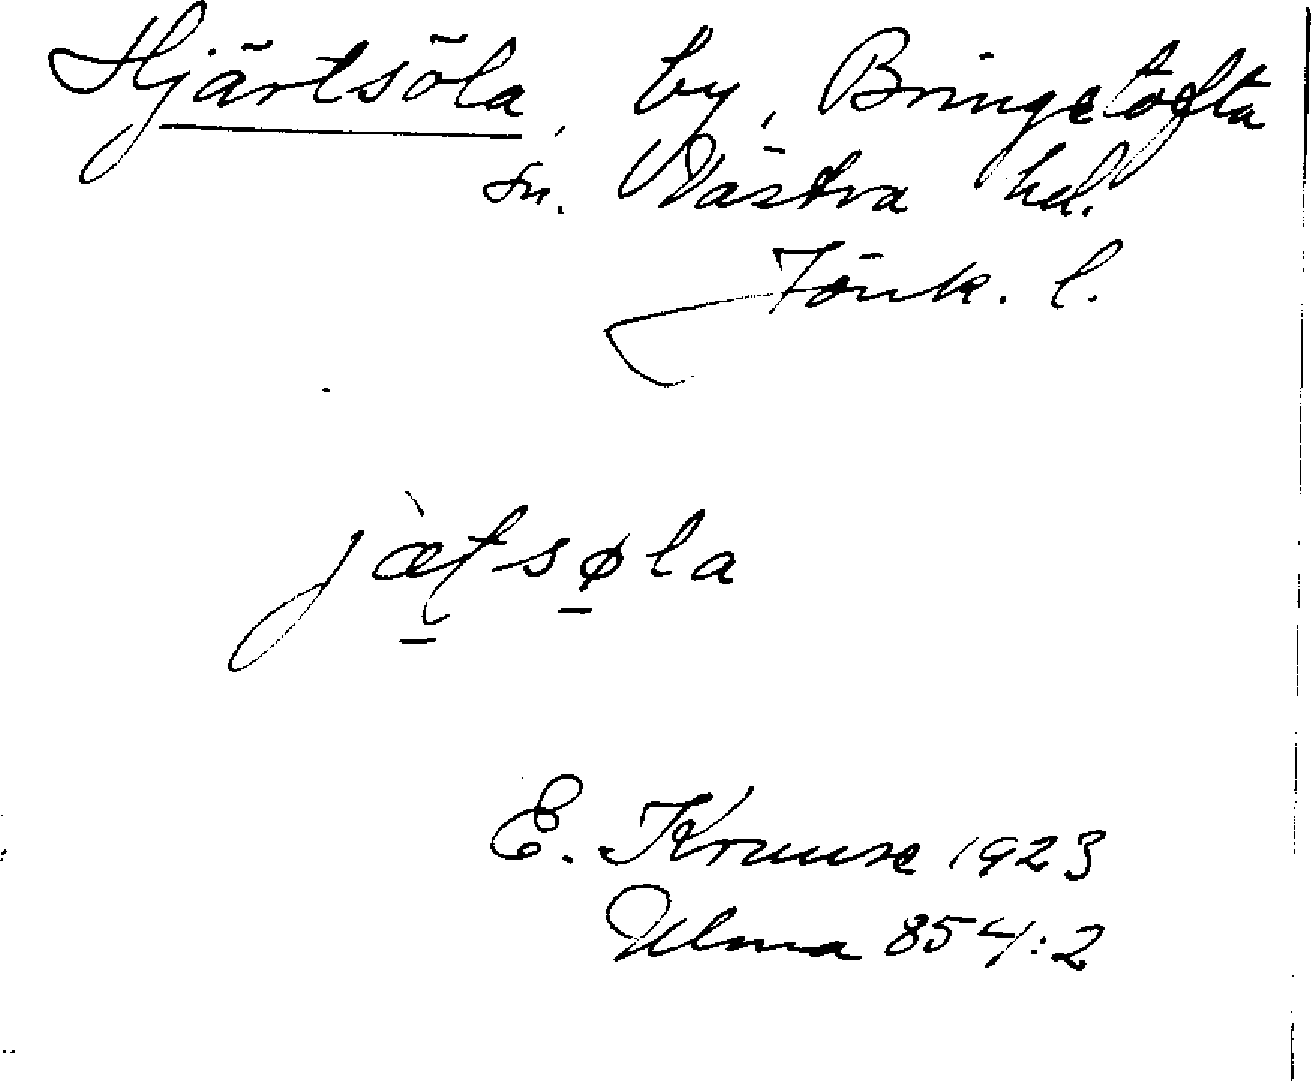 Hjärtsöla, by, Bringetofta
sn. Västra hd.
Jönk. l.
jæ̀t̠sø̠la
E. Kruuse 1923
Ulma 854:2